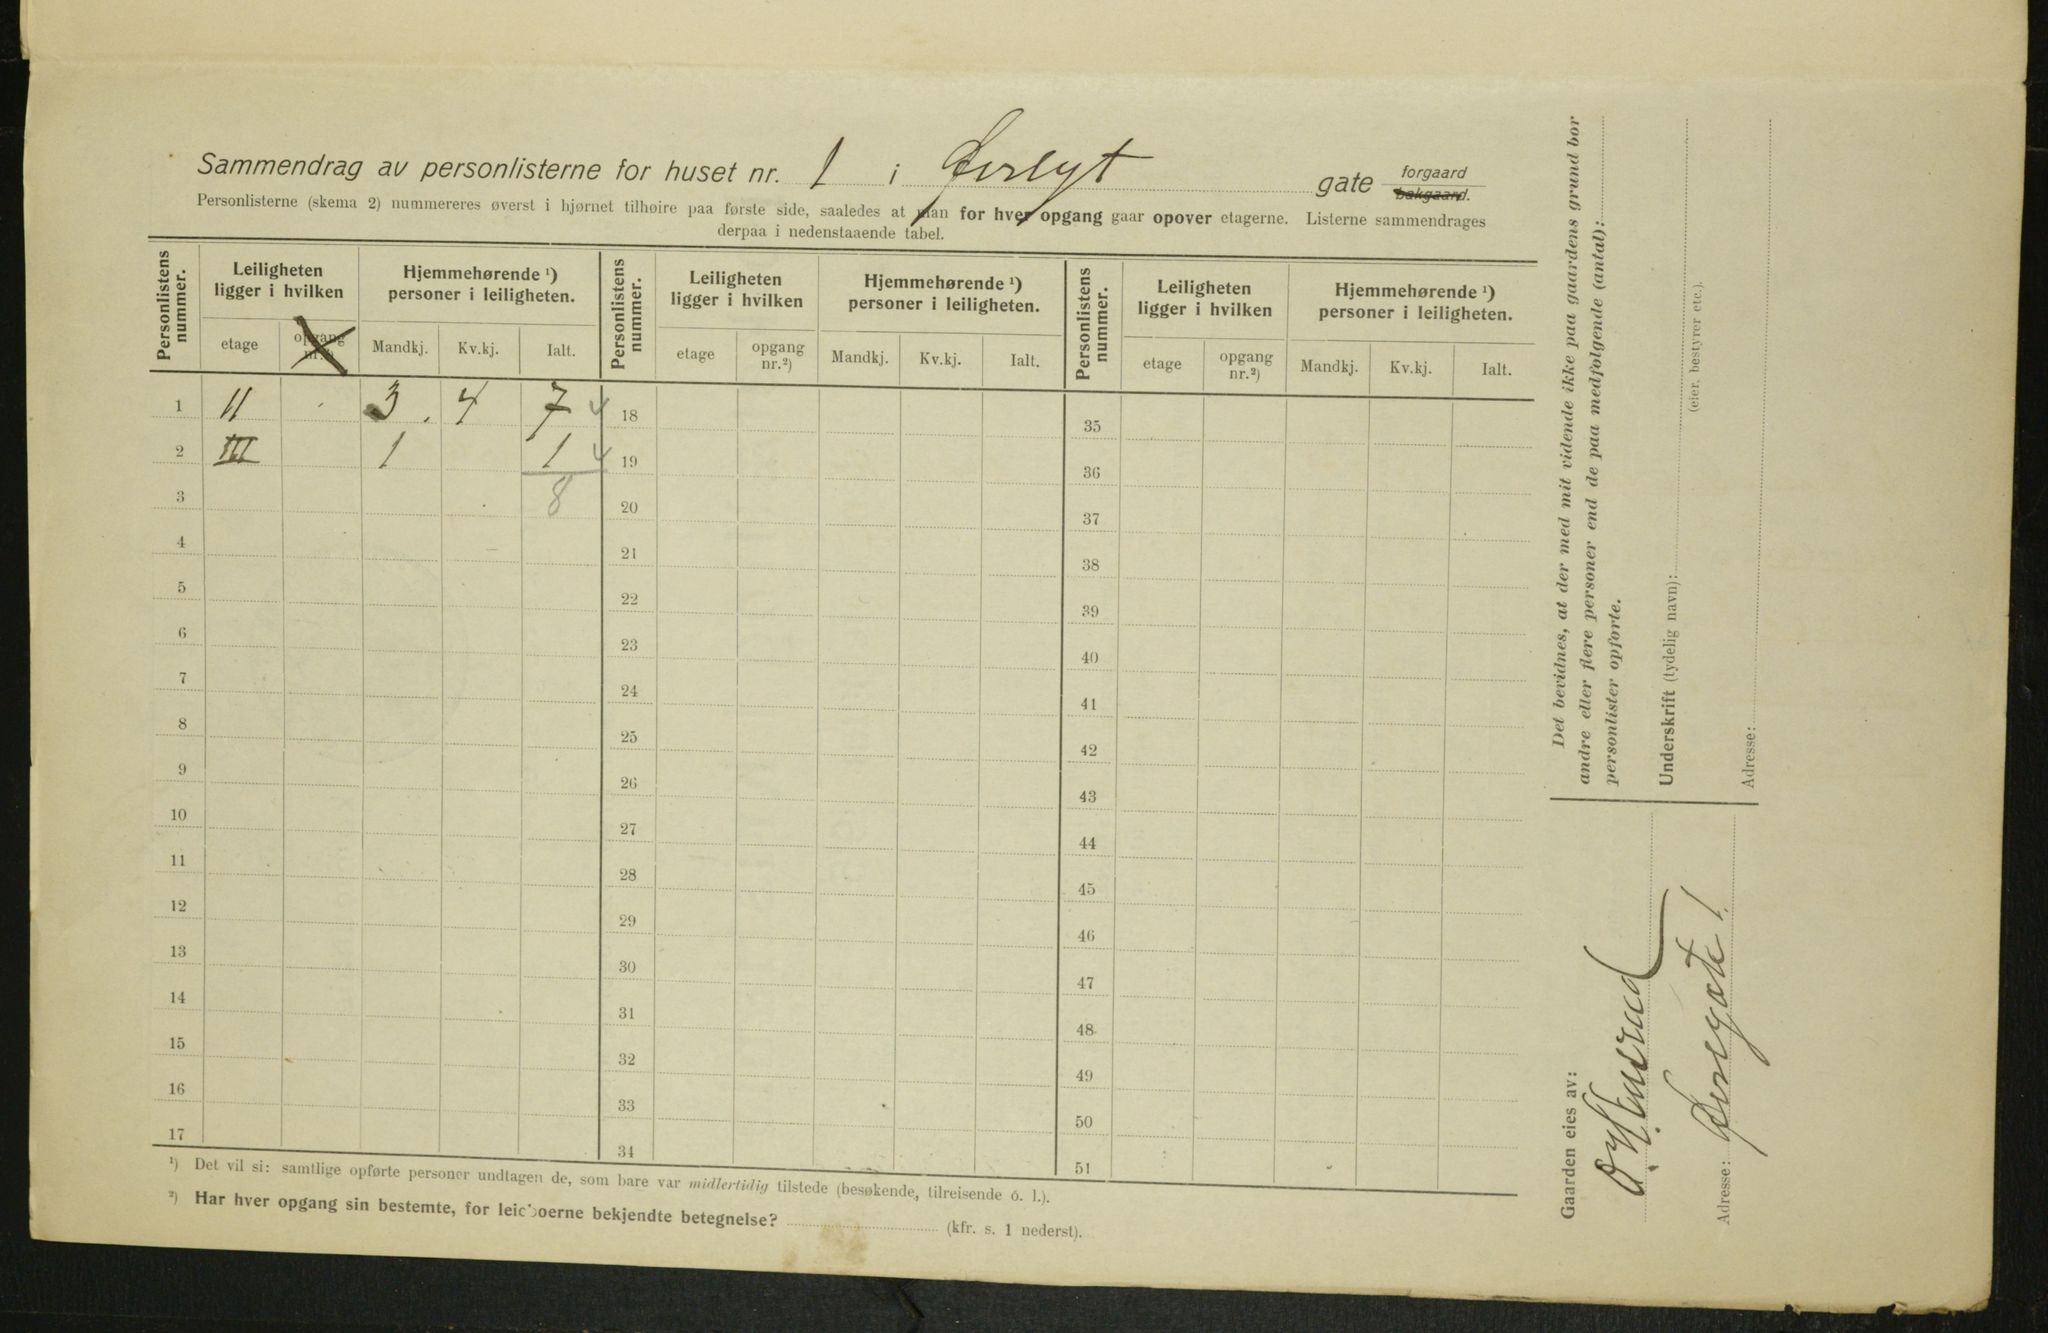 Sammendrag av personlisterne for huset nr. 1 i gate forgaard bakgaard.
Personlisterne (skema 2) nummereres øverst i hjørnet tilhøire paa første side, saaledes at man for hver opgang gaar opover etagerne. Listerne sammendrages
derpaa i nedenstaaende tabel.
Personlistens nummer. Leiligheten ligger i hvilken Hjemmehørende ¹) personer i leiligheten. Personlistens nummer. Leiligheten ligger i hvilken Hjemmehørende ¹) personer i leiligheten. Personlistens nummer. Leiligheten ligger i hvilken Hjemmehørende ¹) personer i leiligheten.
etage opgang nr.²) Mandkj. Kv.kj. Ialt. etage opgang nr.²) Mandkj. Kv.kj. Ialt. etage opgang nr.²) Mandkj. Kv.kj. Ialt.
1 II 3 4 7 4 18 35
2 III 1 1 4 19 36
3 8 20 37
4 21 38
5 22 39
6 23 40
7 24 41
8 25 42
9 26 43
10 27 44
11 28 45
12 29 46
13 30 47
14 31 48
15 32 49
16 33 50
17 34 51
¹) Det vil si: samtlige opførte personer undtagen de, som bare var midlertidig tilstede (besøkende, tilreisende o. l.).
²) Har hver opgang sin bestemte, for leieboerne bekjendte betegnelse? (kfr. s. 1 nederst).
Det bevidnes, at der med mit vidende ikke paa gaardens grund bor
andre eller flere personer end de paa medfølgende (antal):
personlister opførte.
Underskrift (tydelig navn):
(eier, bestyrer etc.).
Adresse:
Gaarden eies av:
Adresse: 1.